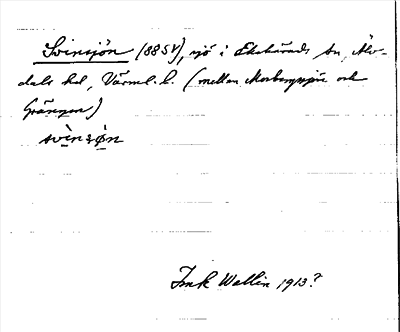 Svinsjön (88SV), sjö i Ekshärads sn, Älv-
dals hd, Värml. l. (mellan Morbergssjön och
Grängen)
svìnʂø̀n
Wallin 1913?